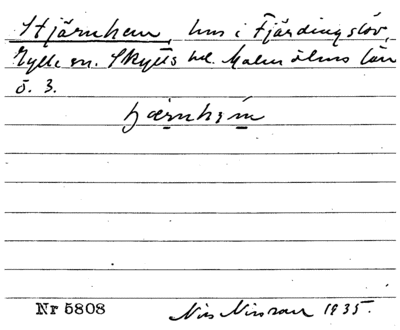 Stjärnhem, hus i Fjärdingslöv,
Gylle sn. Skytts hd. Malmöhus län
ö. 3.
hjærnhem
Nr 5808 Nils Nilsson 1935.